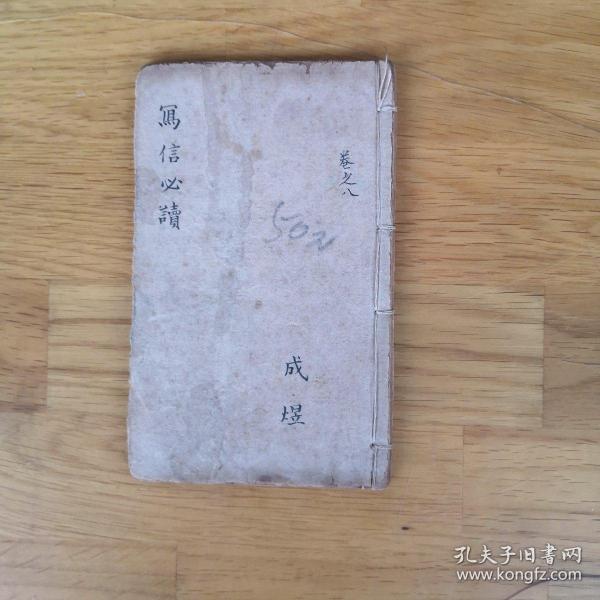 寫信必讀
卷之八
50
成煜
孔夫子旧書网
www.kongfz.com